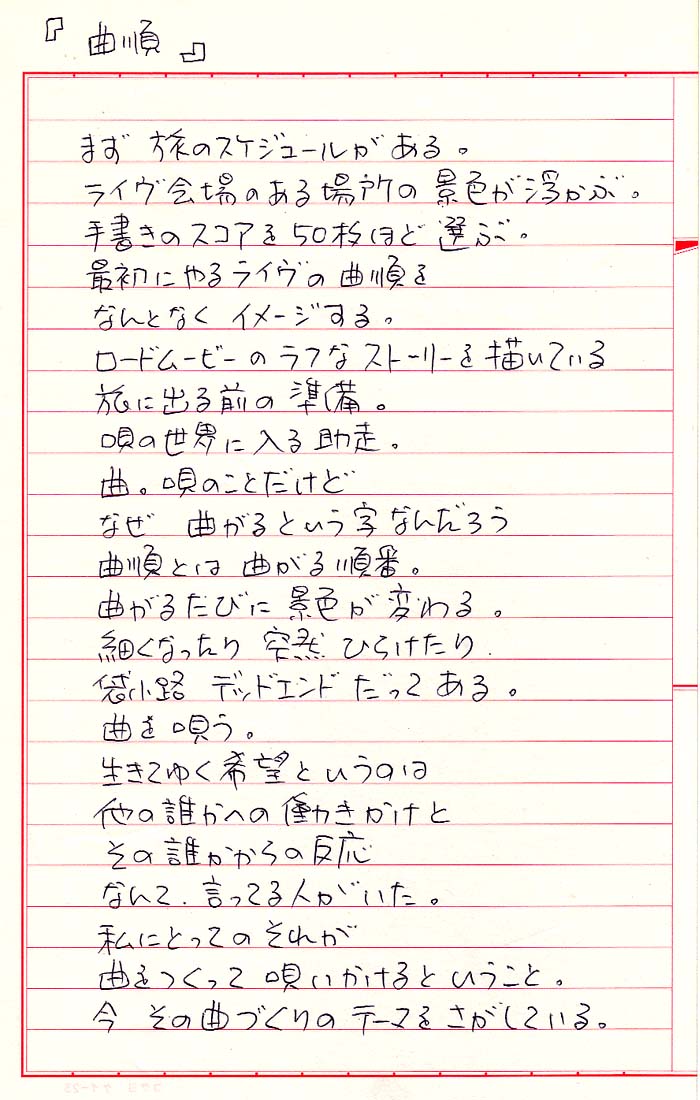 『曲順』
まず 旅のスケジュールがある。
ライヴ会場のある場所の景色が浮かぶ。
手書きのスコアを50枚ほど選ぶ。
最初にやるライヴの曲順を
なんとなくイメージする。
ロードムービーのラフなストーリーを描いている
旅に出る前の準備。
唄の世界に入る助走。
曲。唄のことだけど
なぜ 曲がるという字なんだろう
曲順とは 曲がる順番。
曲がるたびに景色が変わる。
細くなったり 突然 ひらけたり.
袋小路 デッドエンドだってある。
曲を唄う。
生きてゆく希望というのは
他の誰かへの働きかけと
その誰かからの反応
なんて.言ってる人がいた。
私にとってのそれが
曲をつくって唄いかけるということ。
今 その曲づくりのテーマをさがしている。